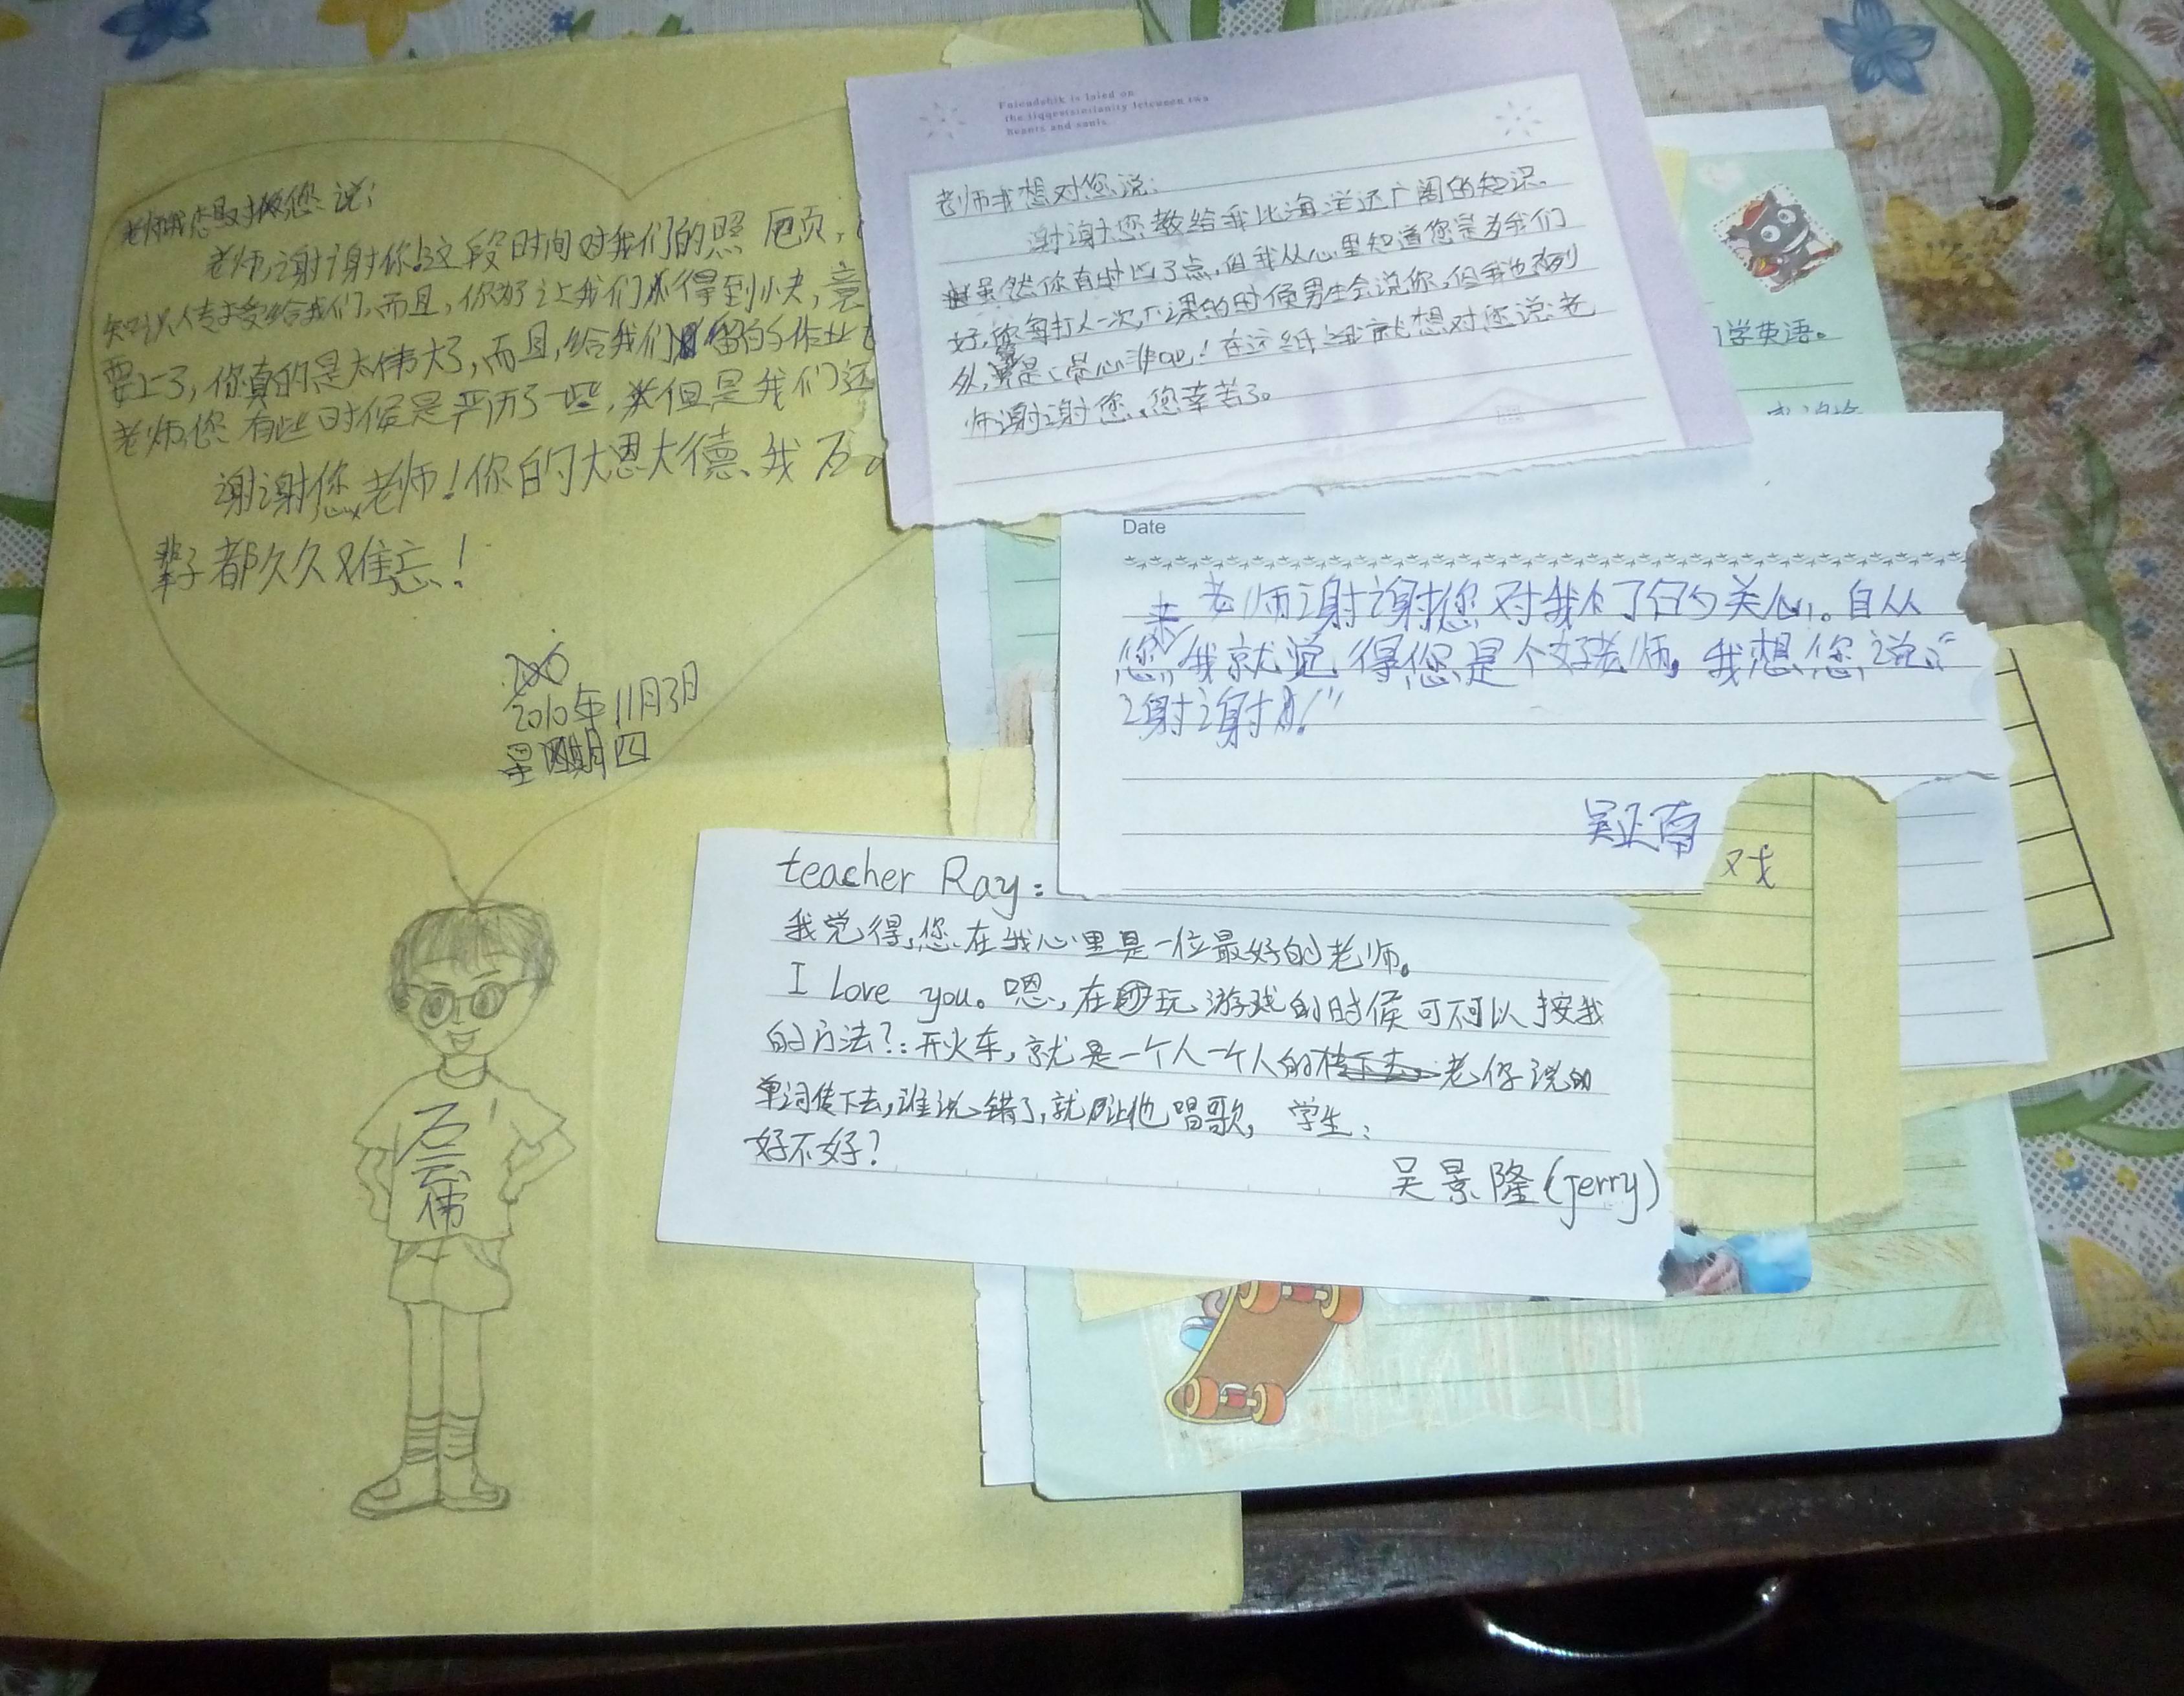 老师我想对您说：
老师，谢谢你这段时间对我们的照顾，
知识传受给我们，而且，你为了让我们得到快，竟
要上了，你真的是太伟大了，而且，给我们留的作业
老师，您有些时候是严历了一些，但是我们还
谢谢您，老师！你的大恩大德、我
辈子都久久难忘！
2010年11月3日
星期四
万云伟
Friendshik is laied on
the tiggestsimilanity tetween two
heants and souls.
老师我想对您说：
谢谢您教给我比海洋还广阔的知识。
虽然你有时凶了点，但我从心里知道您是为我们
好，你每打人一次，下课的时候男生会说你，但我也
是心非吧！在这纸上我就想对您说：老
师谢谢您，您幸苦了。
们学英语。
Date
老师谢谢您对我们的关心。自从
您来我就觉得您是个好老师。我想您说：“
谢谢！”
吴正南
戏
teacher Ray:
我觉得，您在我心里是一位最好的老师。
I Love you。嗯，在玩游戏的时候可不可以按我
的方法？：开火车，就是一个人一个人的老你说的
单词传下去，谁说错了，就让他唱歌， 学生：
好不好？
吴景隆(jerry)